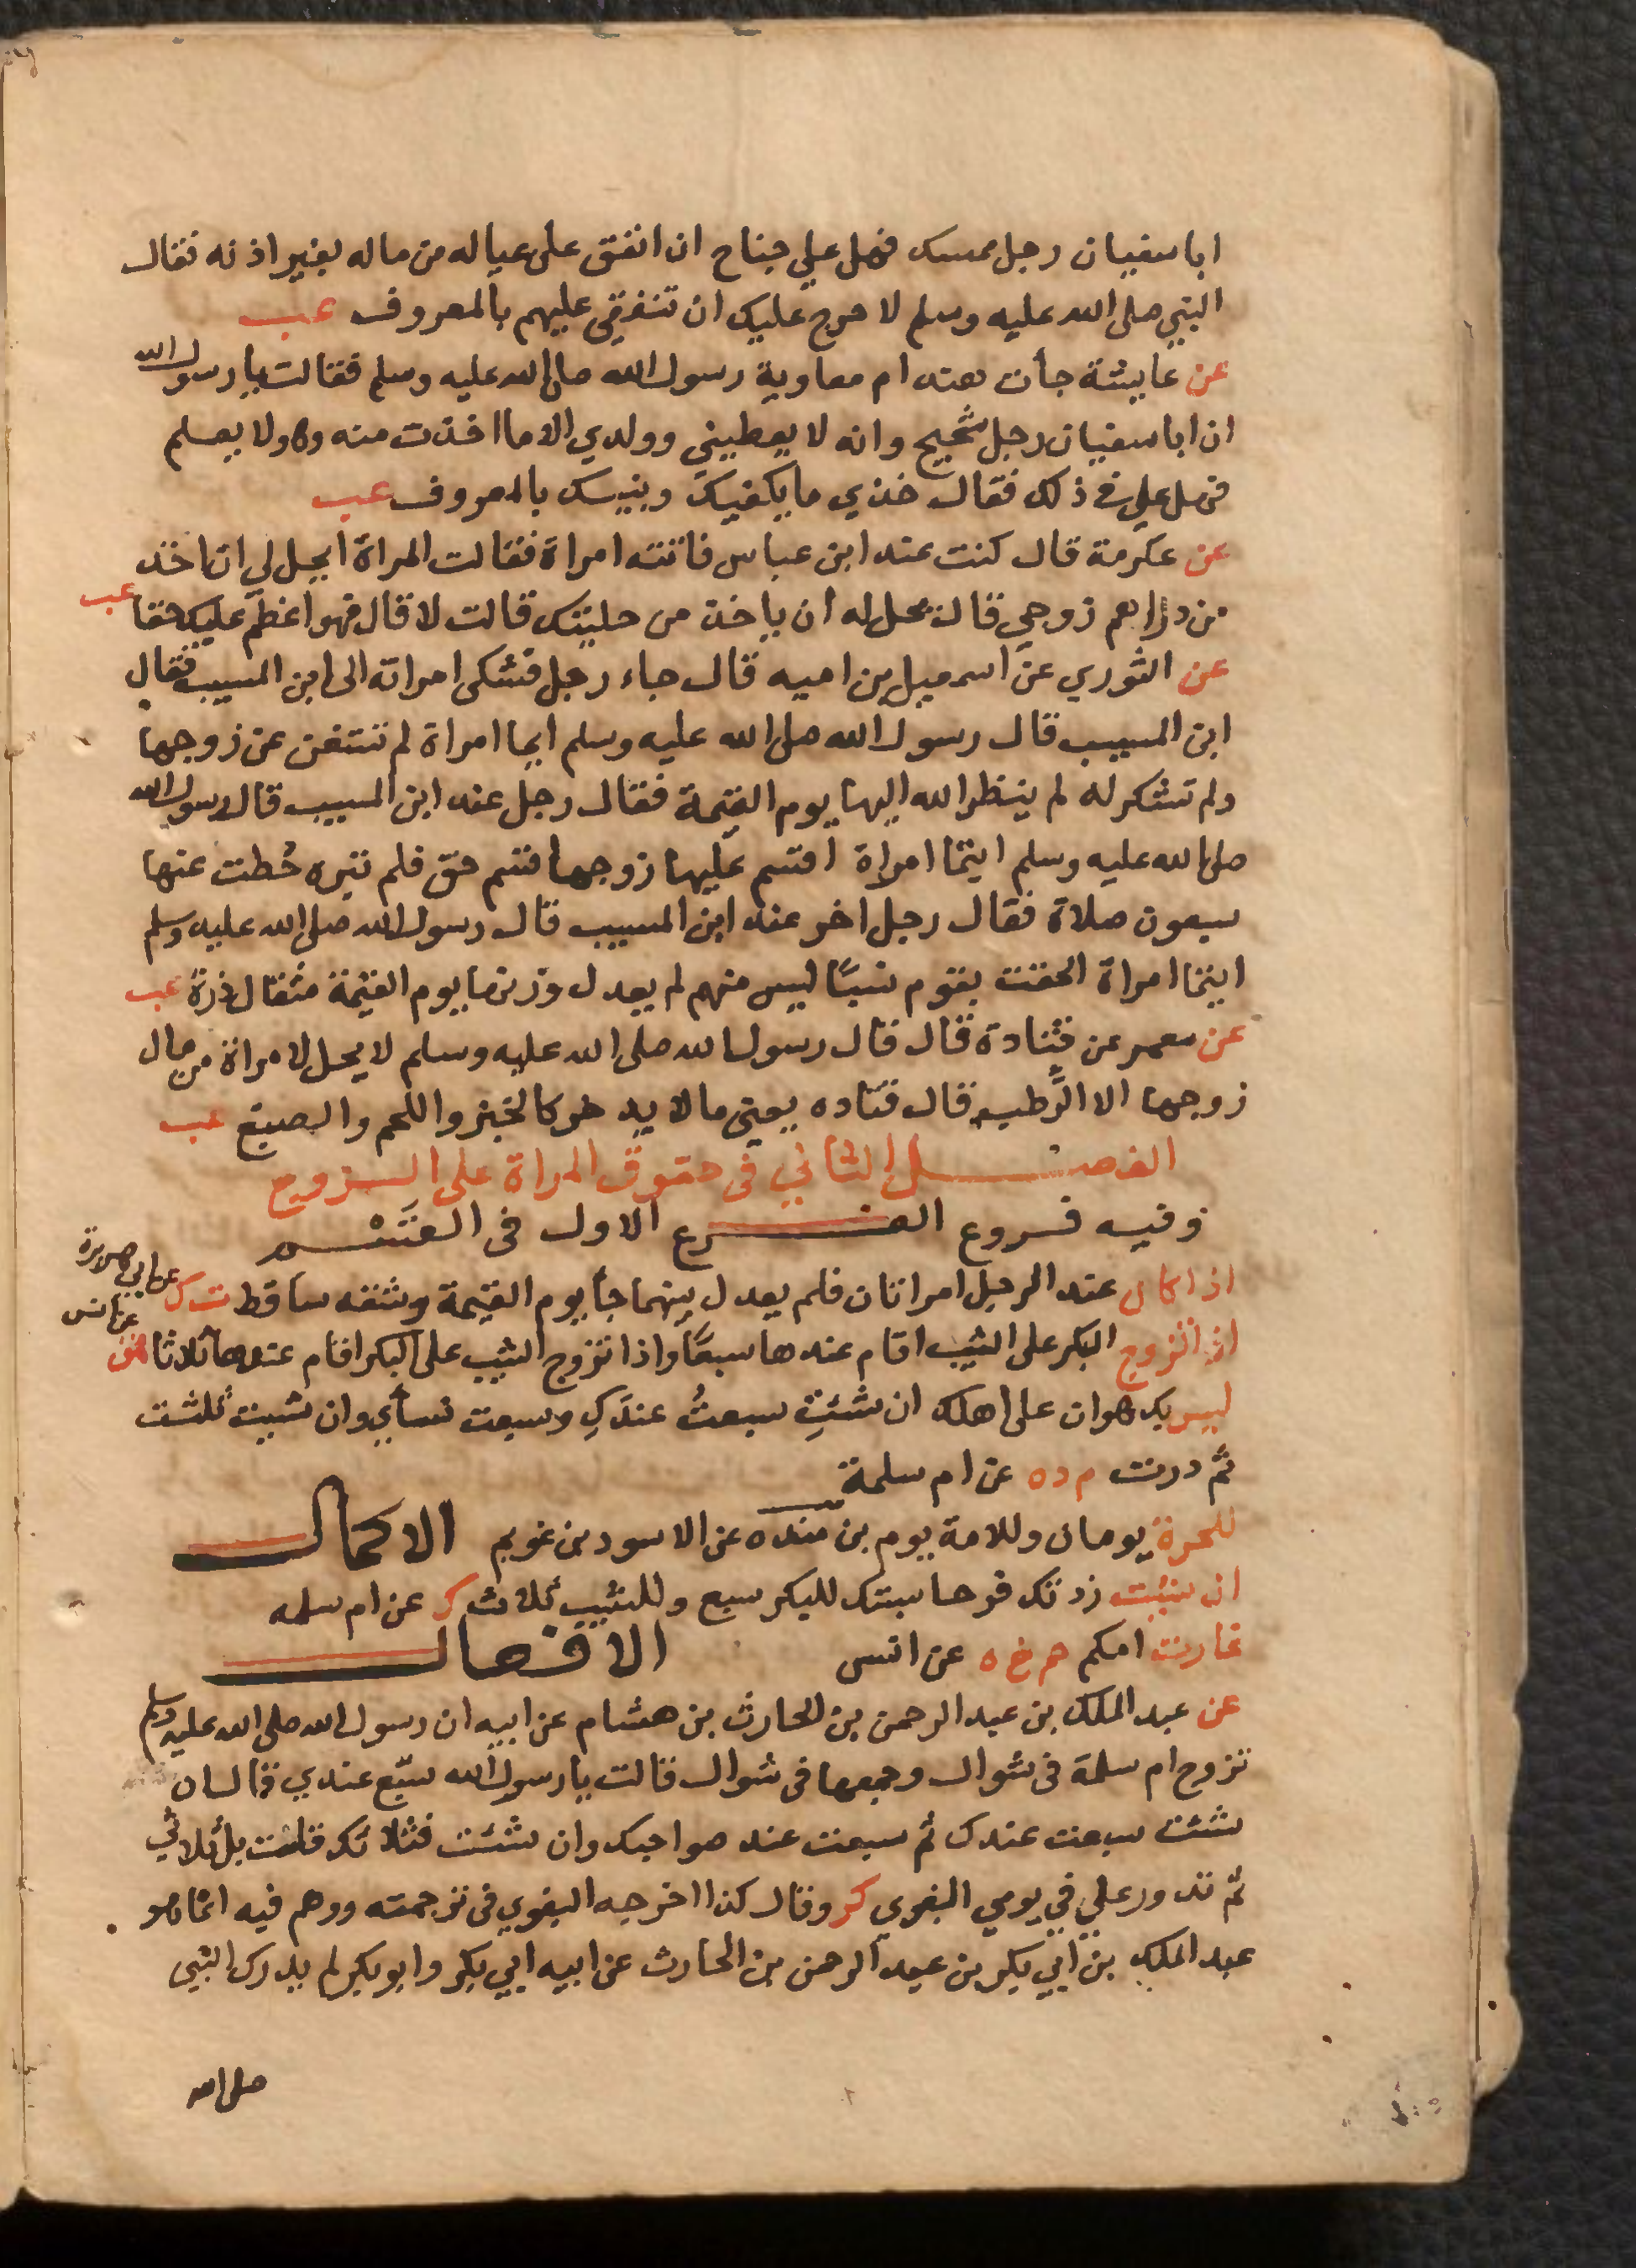 ابا سفيان رجل ممسك فهل علي جناح ان انفق على عياله من ماله بغير اذنه فقال
النبي صلى الله عليه وسلم لا حرج عليك ان تنفقي عليهم بالمعروف عب
عن عايشة جأت هند ام معاوية رسول الله صلى الله عليه وسلم فقالت يا رسول الله
ان ابا سفيان رجل شحيح وانه لا يعطيني وولدي الا ما اخذت منه وهو لا يعلم
فهل علي في ذلك فقال خذي ما يكفيك وبنيك بالمعروف عب
عن عكرمة قال كنت عند ابن عباس فاتته امراة فقالت المراة ايحل لي ان اخذ
من دراهم زوجي قال يحل له ان ياخذ من حليتك قالت لا قال فهو اعظم عليك حقا عب
عن الثوري عن اسمعيل بن اميه قال جاء رجل فشكى امراته الى ابن المسيب فقال
ابن المسيب قال رسول الله صلى الله عليه وسلم ايما امراة لم تستغن عن زوجها
ولم تشكر له لم ينظر الله اليها يوم القيمة فقال رجل عند ابن المسيب قال رسول الله
صلى الله عليه وسلم ايتما امراة اقسم عليها زوجها قسم حق فلم تبره حُطت عنها
سبعون صلاة فقال رجل اخر عند ابن المسيب قال رسول الله صلى الله عليه وسلم
ايتما امراة الحقت بقوم نسبًا ليس منهم لم يعدل وزنها يوم القيمة مثقال ذرة عب
عن معمر عن قتادة قال قال رسول الله صلى الله عليه وسلم لا يحل لامراة من مال
زوجها الا الرَّطب قال قتاده يعني ما لا يدخر كالخبز واللحم والصبغ عب
الفصل الثاني في حقوق المراة على الزوج
وفيه فروع الفرع الاول في القَسْم
اذا كان عند الرجل امراتان فلم يعدل بينهما جأ يوم القيمة وشقه ساقط ت ك عن ابي هريرة
اذا تزوج البكر على الثيب اقام عندها سبعًا واذا تزوج الثيب على البكر اقام عندها ثلاثا هق عن انس
ليس بك هوان على اهلك ان شئتِ سبعتُ عندكِ وسبعت لنسأي وان شيت ثلثت
ثم درت م د ه عن ام سلمة
للحرة يومان وللامة يوم بن منده عن الاسود بن عويم الاكمال
ان شئت زدتك وحاسبتك للبكر سبع وللثيب ثلاث ك عن ام سلمه
غارت امكم حم خ ه عن انس الافعال
عن عبد الملك بن عبد الرحمن بن الحارث بن هشام عن ابيه ان رسول الله صلى الله عليه وسلم
تزوج ام سلمة في شوال وجمعها في شوال فقالت يا رسول الله سبّع عندي فقال ان
شئت سبعت عندك ثم سبعت عند صواحبك وان شئت فثلاثك قالت بل ثلاثي
ثم تدور علي في يومي البغوي كر وقال كذا اخرجه البغوي في ترجمته ووهم فيه انما هو
عبد الملك بن ابي بكر بن عبد الرحمن بن الحارث عن ابيه ابي بكر وابو بكر لم يدرك النبي
صلى الله